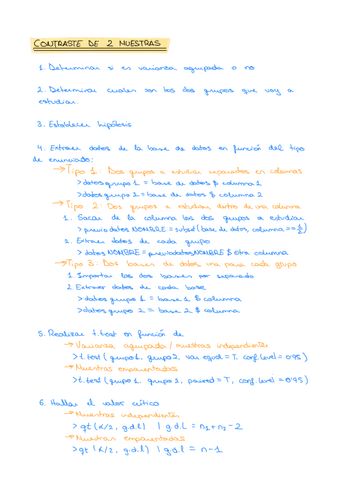 CONTRASTE DE 2 MUESTRAS
1. Determinar si es varianza agrupada o no
2. Determinar cuales son los dos grupos que voy a
estudiar.
3. Establecer hipótesis
4. Extraer datos de la base de datos en función del tipo
de enunciado:
→Tipo 1: Dos grupos a estudiar separados en columnas
>datos grupo 1 = base de datos $ columna 1
>datos grupo 2 = base de datos $ columna 2
→Tipo 2: Dos grupos a estudiar dentro de una columna
1. Sacar de la columna los dos grupos a estudiar
>previodatos NOMBRE = subset (base de datos, columna ==
2. Extraer datos de cada grupo
>datos NOMBRE = previodatos NOMBRE $ otra columna
→Tipo 3: Dos bases de datos, una para cada grupo
1. Importar las dos bases por separado
2. Extraer datos de cada base
>datos grupo 1 = base 1 $ columna
>datos grupo 2 = base 2 $ columna.
5. Realizar t.test en función de
→Varianza agrupada / muestras independientes
>t.test (grupo 1, grupo 2, var.equal = T, conf.level = 0'95)
→Muestras emparentadas
>t.test (grupo 1, grupo 2, paired = T, conf.level = 0'95)
6. Hallar el valor crítico
→Muestras independientes
>qt (α/2, g.d.l) | g.d.l = n1 + n2 - 2
→Muestras emparentadas
>qt (α/2, g.d.l) | g.d.l = n-1